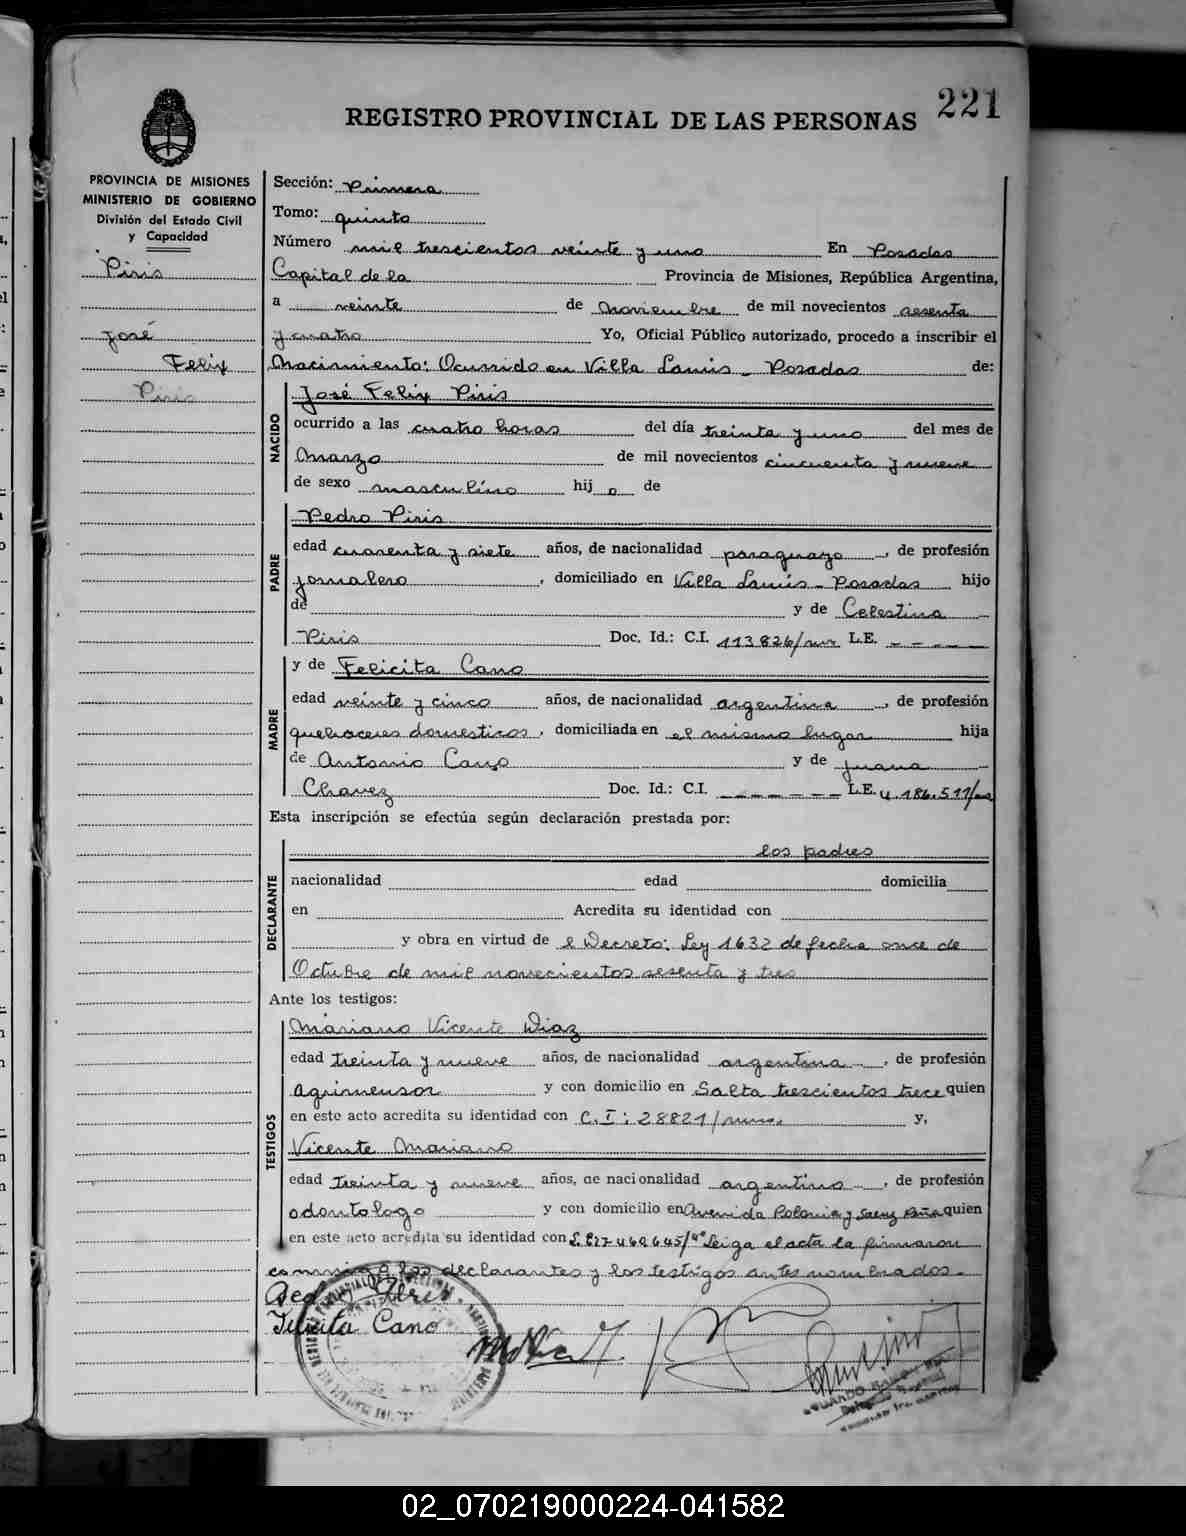 221
REGISTRO PROVINCIAL DE LAS PERSONAS
PROVINCIA DE MISIONES
MINISTERIO DE GOBIERNO
División del Estado Civil
y Capacidad
Piris
José
Felix
Piris
Sección: Primera
Tomo: quinto
Número mil trescientos veinte y uno En Posadas
Capital de la Provincia de Misiones, República Argentina,
a veinte de Noviembre de mil novecientos sesenta
y cuatro Yo, Oficial Público autorizado, procedo a inscribir el
Nacimiento: Ocurrido en Villa Lanús - Posadas de:
NACIDO
José Felix Piris
ocurrido a las cuatro horas del día treinta y uno del mes de
Marzo de mil novecientos cincuenta y nueve
de sexo masculino hijo de
PADRE
Pedro Piris
edad cuarenta y siete años, de nacionalidad paraguayo, de profesión
jornalero, domiciliado en Villa Lanús - Posadas hijo
de y de Celestina
Piris Doc. Id.: C.I. 113826/ L.E. - - - - -
MADRE
y de Felicita Cano
edad veinte y cinco años, de nacionalidad argentina, de profesión
quehaceres domesticos, domiciliada en el mismo lugar hija
de Antonio Cano y de Juana
Chavez Doc. Id.: C.I. - - - - - - L.E. 4.186.511/
Esta inscripción se efectúa según declaración prestada por:
DECLARANTE
los padres
nacionalidad edad domicilia
en Acredita su identidad con
y obra en virtud de l Decreto: Ley 1632 de fecha once de
Octubre de mil novecientos sesenta y tres
Ante los testigos:
TESTIGOS
Mariano Vicente Diaz
edad treinta y nueve años, de nacionalidad argentina, de profesión
Agrimensor y con domicilio en Salta trescientos trece quien
en este acto acredita su identidad con C.I: 28821/ y,
Vicente Mariano
edad treinta y nueve años, de nacionalidad argentino, de profesión
odontologo y con domicilio en Avenida Polonia y Saenz Peña quien
en este acto acredita su identidad con Leiga el acta la firmaron
conmigo los declarantes y los testigos antes nombrados.-
Pedro Piris
Felicita Cano
02_070219000224-041582